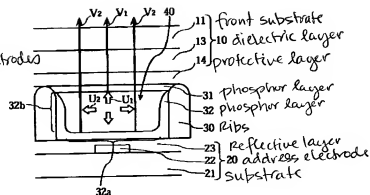 V2 V1 V2 40
11 front substrate
13 10 dielectric layer
14 protective layer
trodes
31 phosphor layer
32b U2 U1 32 phosphor layer
30 Ribs
23 reflective layer
22 20 address electrode
21 substrate
32a